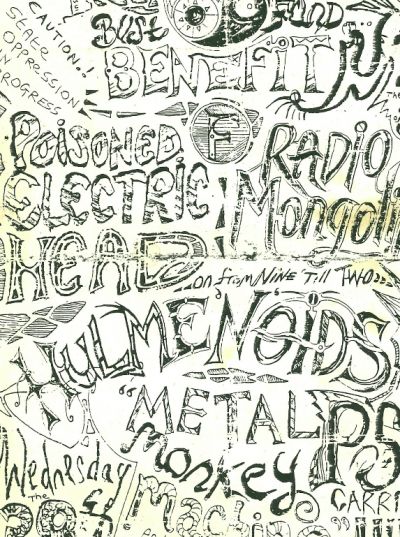 CAUTION..!
State
OPPRESSION
IN
PROGRESS
Bust Fund
BENEFIT
The
POiSONED
ELECTRIC
HEAD
F
RADIO
Mongoli
on from NINE 'Till TWO
HULMENOIDS
"METAL
monkey
Machine"
PS
Wednesday
The
£
CARRI